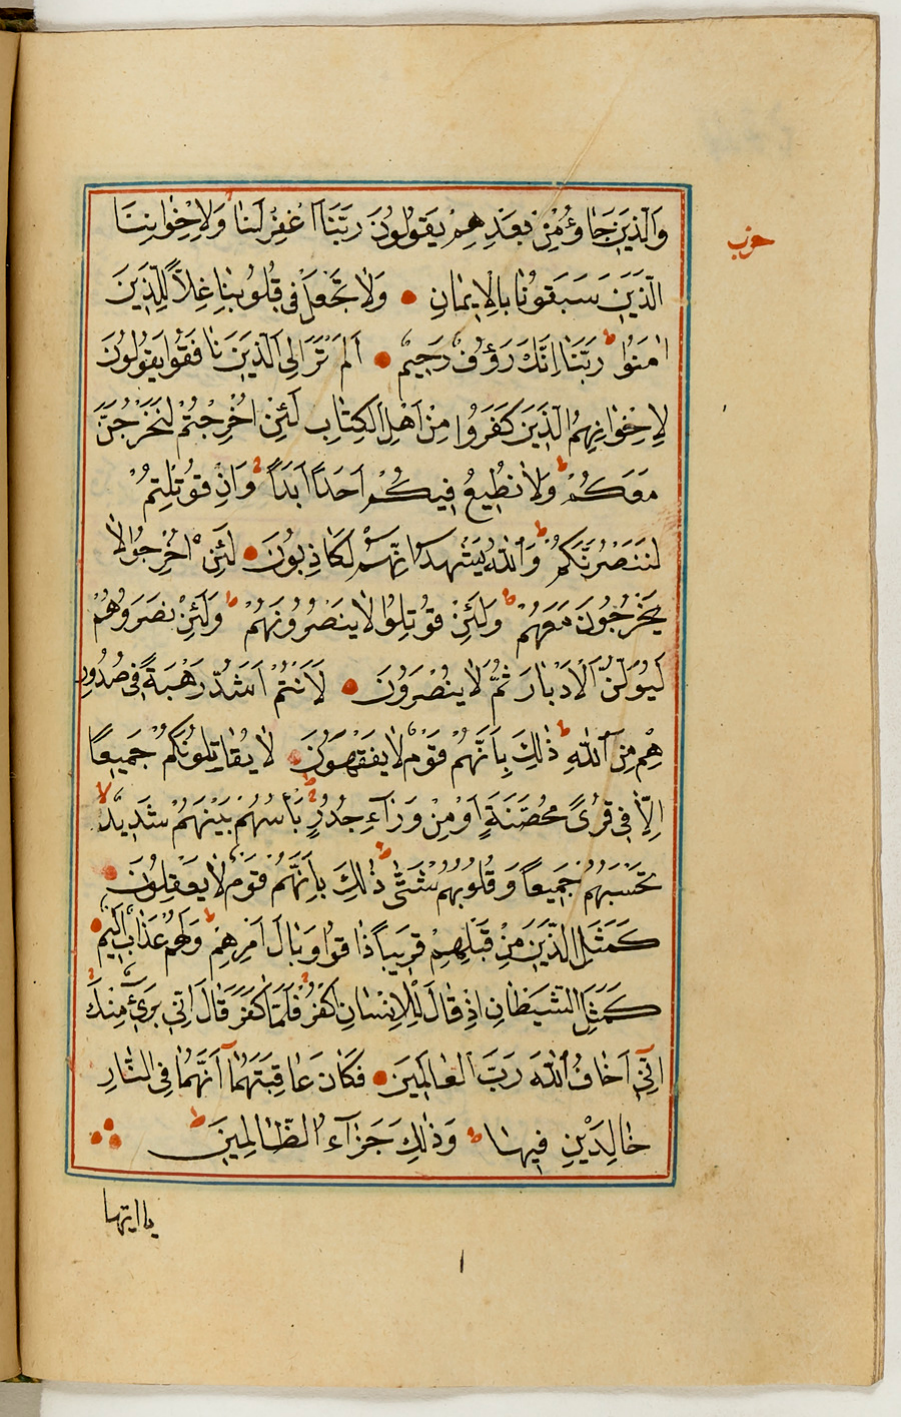 وَالَّذِينَ جَاؤُ مِنْ بَعْدِهِمْ يَقُولُونَ رَبَّنَا اغْفِرْ لَنَا وَلِاِخْوَانِنَا
حزب
الَّذِينَ سَبَقُونَا بِالْاِيمَانِ وَلَا تَجْعَلْ فِي قُلُوبِنَا غِلًّا لِلَّذِينَ
اٰمَنُوا ط رَبَّنَا اِنَّكَ رَؤُفٌ رَحِيمٌ اَلَمْ تَرَ اِلَى الَّذِينَ نَافَقُوا يَقُولُونَ
لِاِخْوَانِهِمُ الَّذِينَ كَفَرُوا مِنْ اَهْلِ الْكِتَابِ لَئِنْ اُخْرِجْتُمْ لَنَخْرُجَنَّ
مَعَكُمْ ط وَلَا نُطِيعُ فِيكُمْ اَحَدًا اَبَدًا وَاِنْ قُوتِلْتُمْ
لَنَنْصُرَنَّكُمْ ط وَاللّٰهُ يَشْهَدُ اِنَّهُمْ لَكَاذِبُونَ لَئِنْ اُخْرِجُوا لَا
يَخْرُجُونَ مَعَهُمْ ط وَلَئِنْ قُوتِلُوا لَا يَنْصُرُونَهُمْ ط وَلَئِنْ نَصَرُوهُمْ
لَيُوَلُّنَّ الْاَدْبَارَ ثُمَّ لَا يُنْصَرُونَ لَاَنْتُمْ اَشَدُّ رَهْبَةً فِي صُدُورِ
هِمْ مِنَ اللّٰهِ ط ذٰلِكَ بِاَنَّهُمْ قَوْمٌ لَا يَفْقَهُونَ لَا يُقَاتِلُونَكُمْ جَمِيعًا
اِلَّا فِي قُرًى مُحَصَّنَةٍ اَوْ مِنْ وَرَاءِ جُدُرٍ ط بَأْسُهُمْ بَيْنَهُمْ شَدِيدٌ لا
تَحْسَبُهُمْ جَمِيعًا وَقُلُوبُهُمْ شَتّٰى ط ذٰلِكَ بِاَنَّهُمْ قَوْمٌ لَا يَعْقِلُونَ
كَمَثَلِ الَّذِينَ مِنْ قَبْلِهِمْ قَرِيبًا ذَاقُوا وَبَالَ اَمْرِهِمْ ط وَلَهُمْ عَذَابٌ اَلِيمٌ
كَمَثَلِ الشَّيْطَانِ اِذْ قَالَ لِلْاِنْسَانِ اكْفُرْ فَلَمَّا كَفَرَ قَالَ اِنِّي بَرِيءٌ مِنْكَ
اِنِّي اَخَافُ اللّٰهَ رَبَّ الْعَالَمِينَ فَكَانَ عَاقِبَتَهُمَا اَنَّهُمَا فِي النَّارِ
خَالِدَيْنِ فِيهَا ط وَذٰلِكَ جَزَاءُ الظَّالِمِينَ ط
يا ايها
١